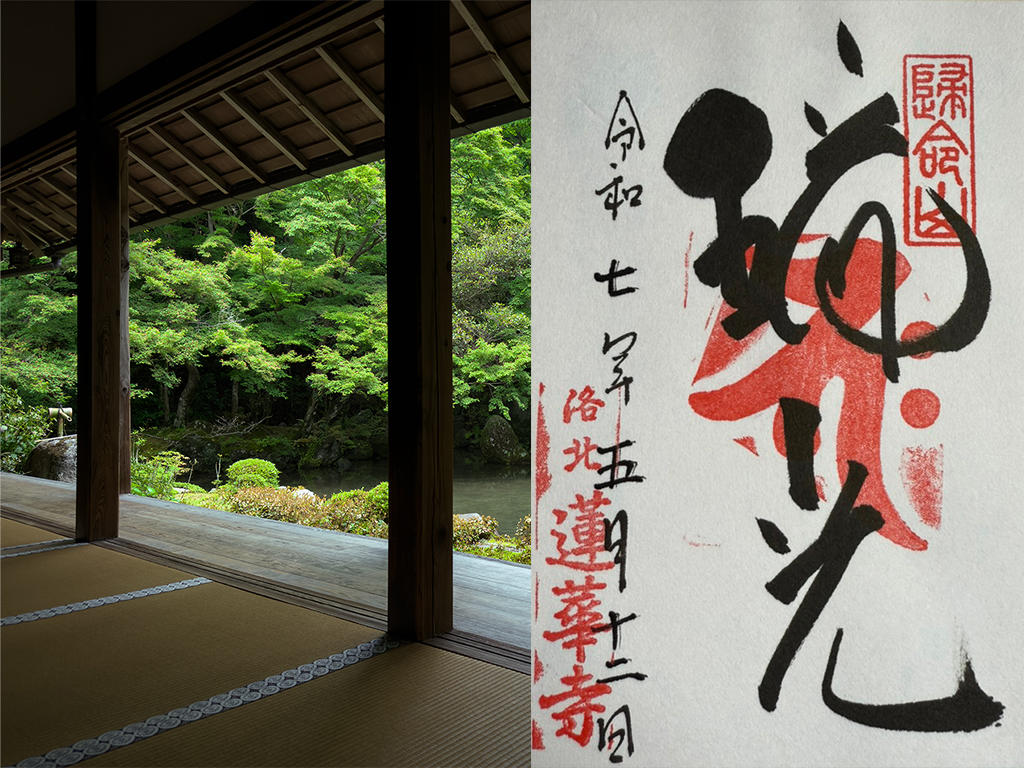 歸命山
瑞光
令和七年五月十二日
洛北蓮華寺